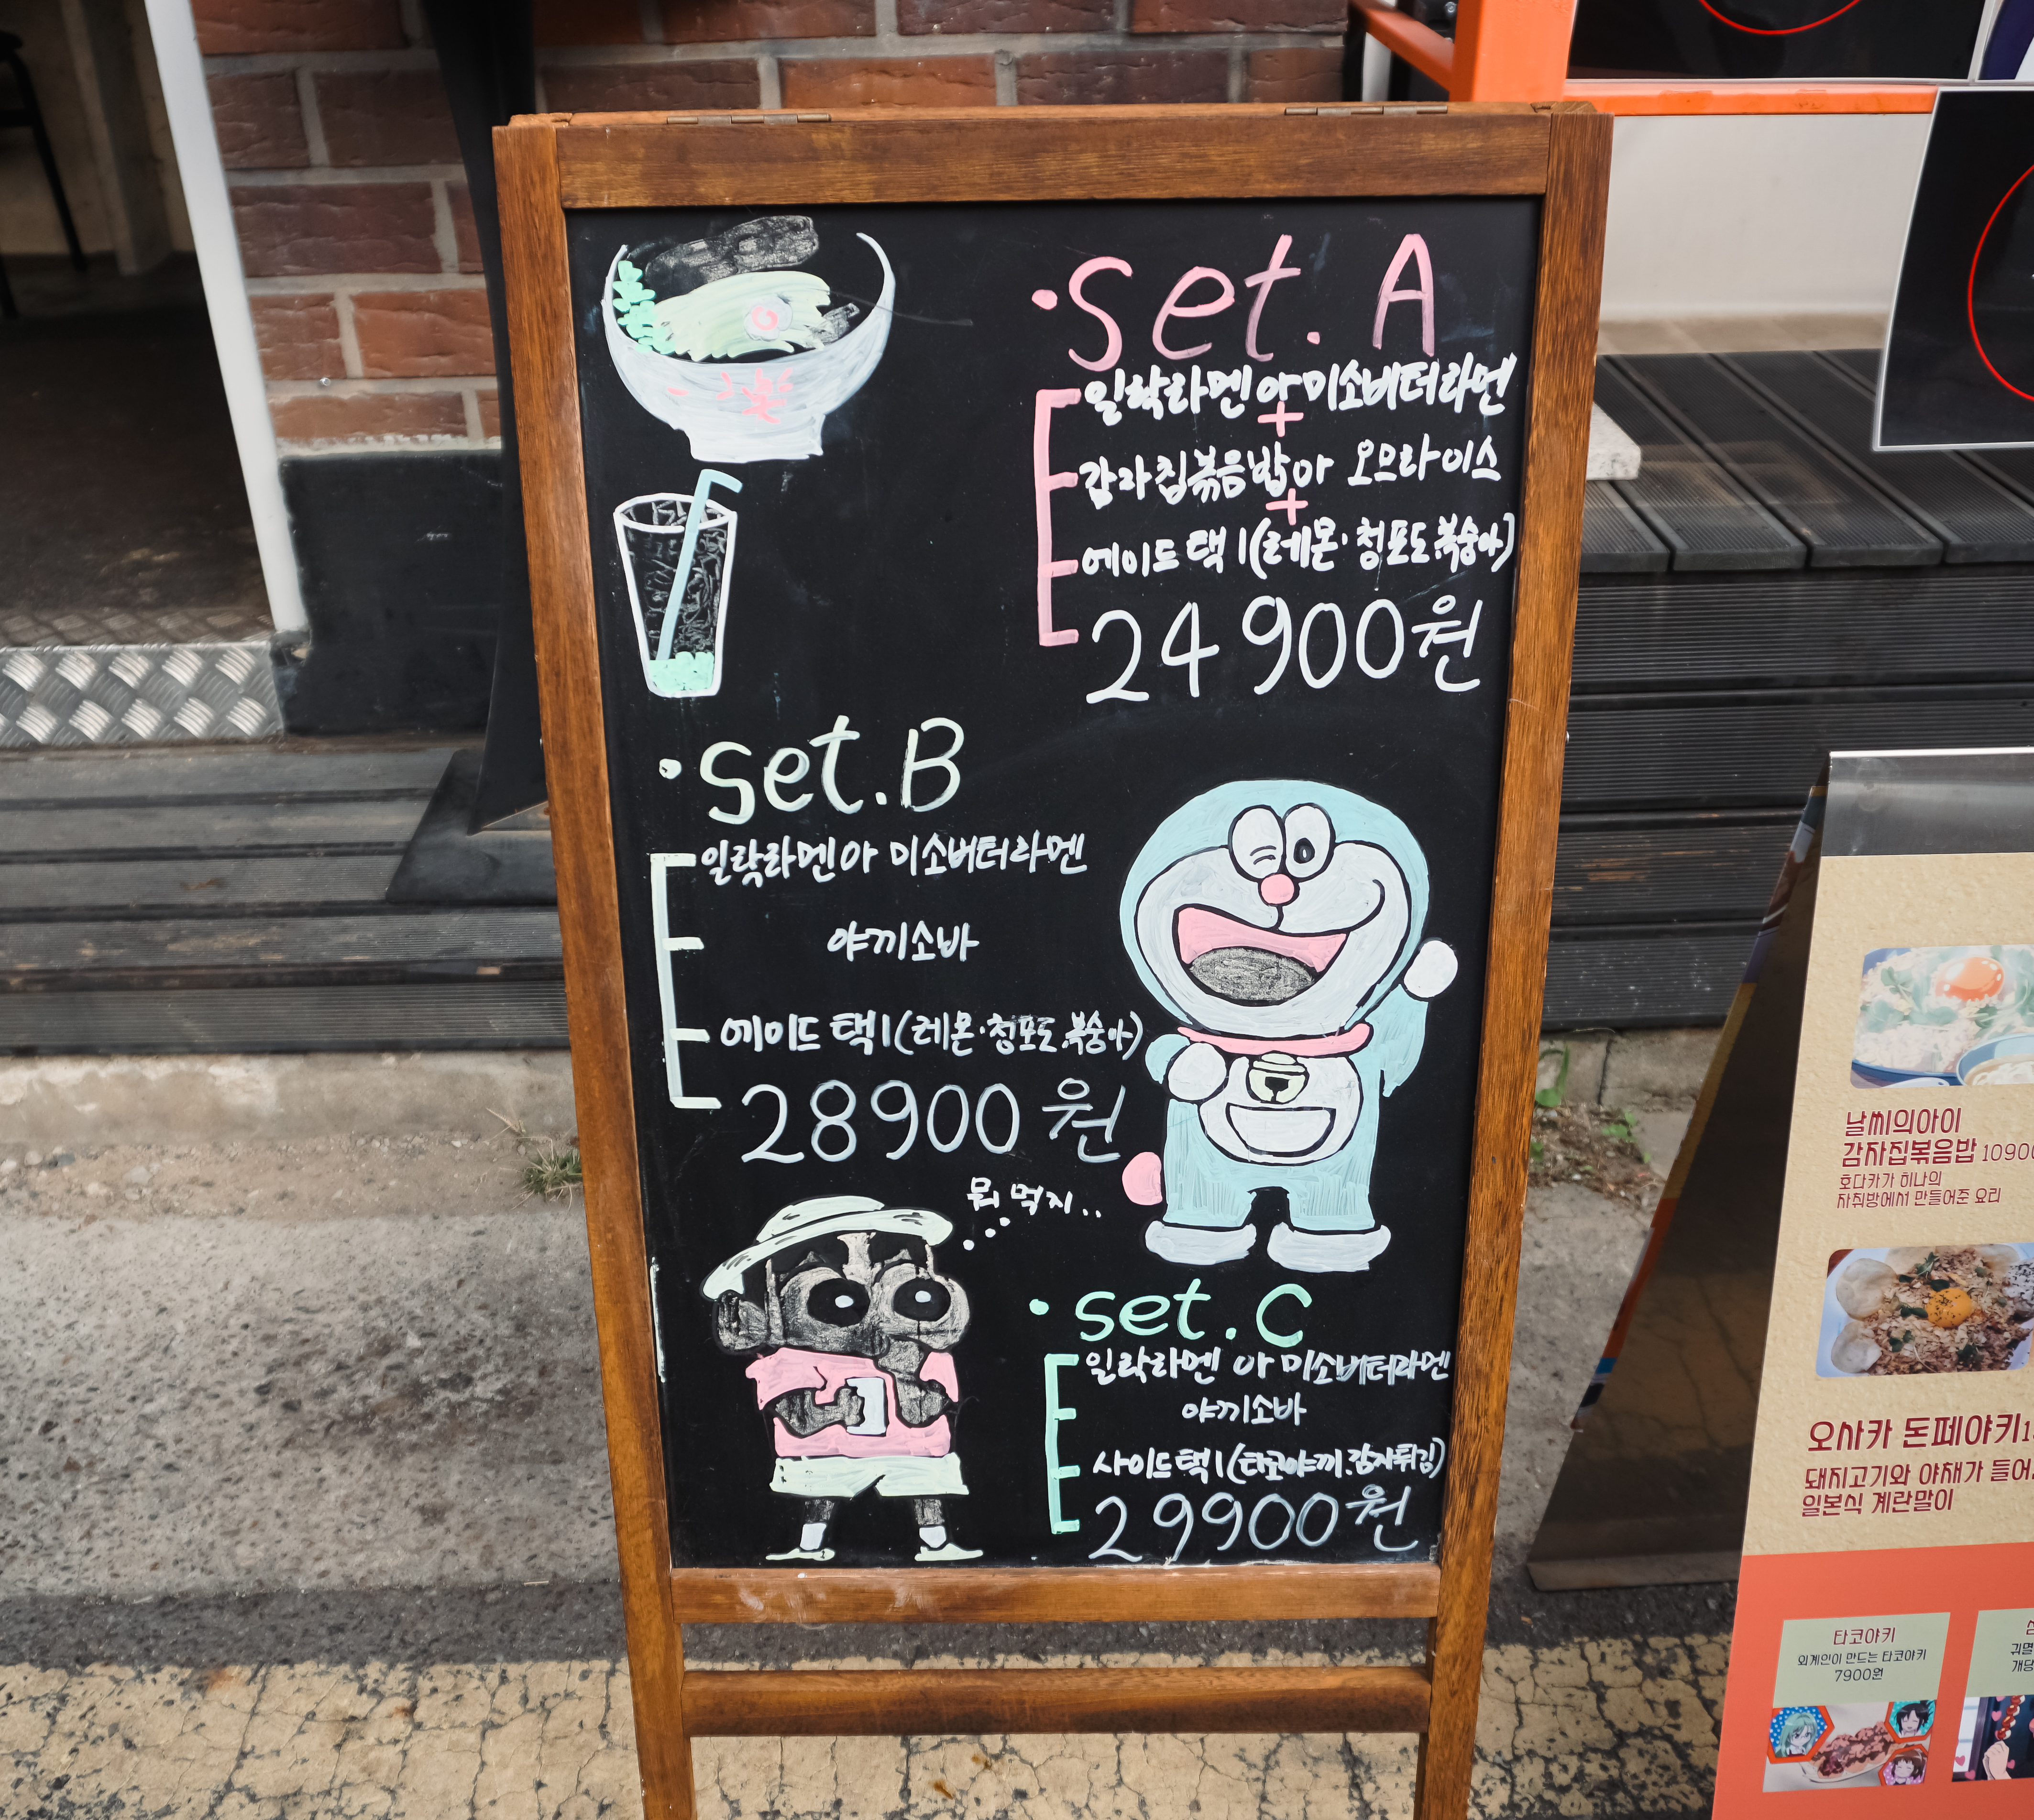 · set. A
일락라멘 or 미소버터라멘
+
감자칩볶음밥 or 오므라이스
+
에이드 택 1 (레몬·청포도·복숭아)
24900원
· set. B
일락라멘 or 미소버터라멘
야끼소바
에이드 택 1 (레몬·청포도·복숭아)
28900원
뭐 먹지..
· set. C
일락라멘 or 미소버터라멘
야끼소바
사이드 택 1 (타코야끼·감자튀김)
29900원
날씨의아이
감자칩볶음밥 10900
호다카가 히나의
자취방에서 만들어준 요리
오사카 돈페야키
돼지고기와 야채가 들어
일본식 계란말이
타코야키
외계인이 만드는 타코야키
7900원